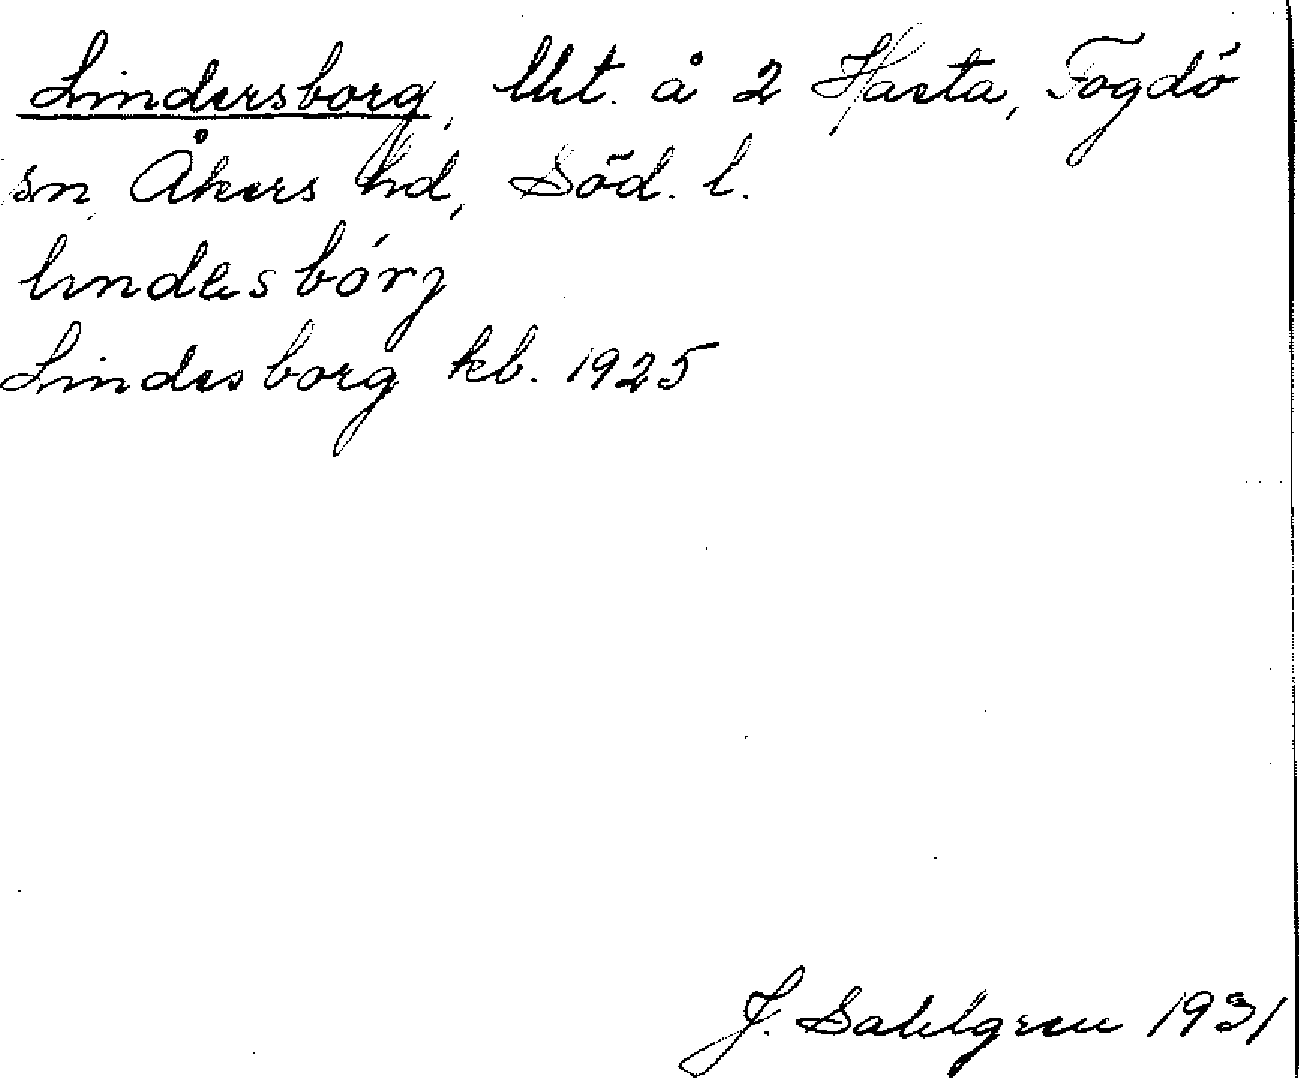 Lindersborg, lht. å 2 Hasta, Fogdö
sn, Åkers hd, Söd. l.
lındäs bórg
Lindesborg kb. 1925
J. Sahlgren 1931